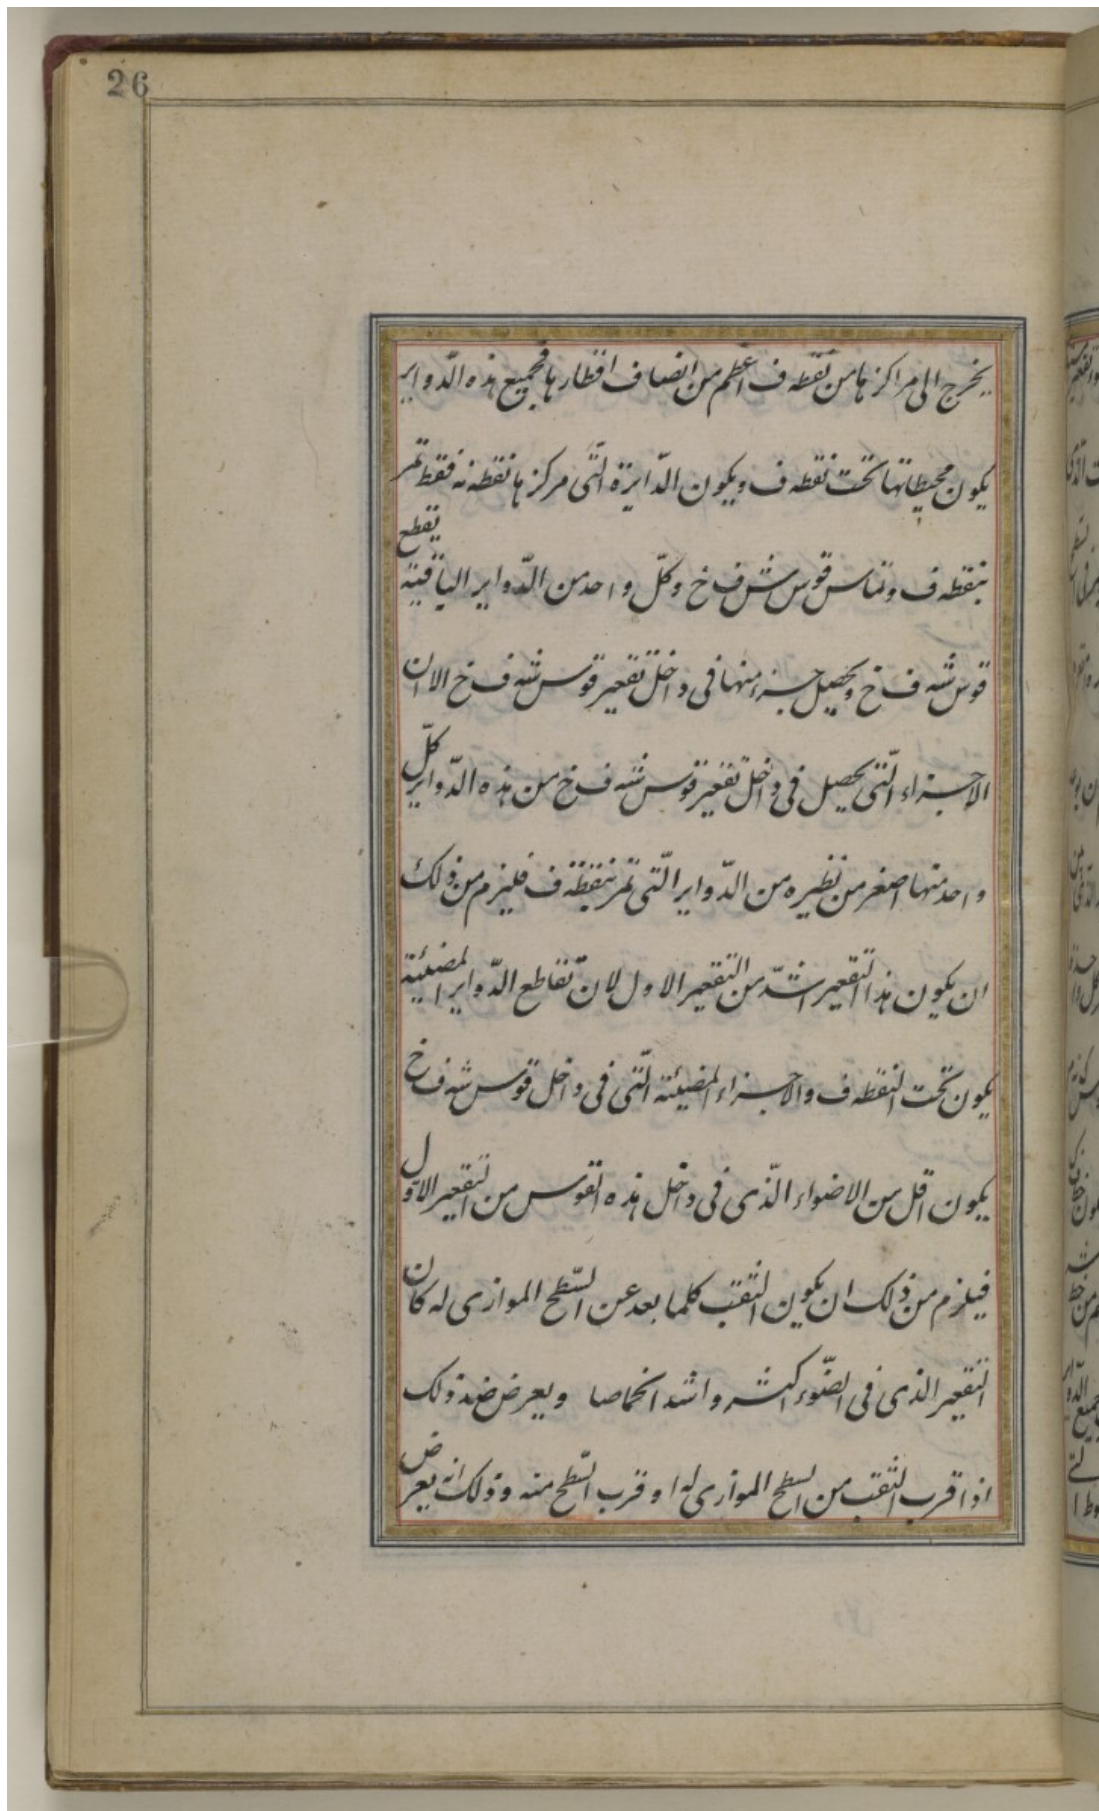 26
يخرج الى مراكزها من نقطه ف اعظم من انصاف اقطارها فجميع هذه الدّواير
يكون محيطاتها تحت نقطه ف ويكون الدّايرة الّتى مركزها نقطه نه فقط تمر
بنقطه ف وتماس قوس ش ف خ وكلّ واحد من الدّواير الباقية يقطع
قوس شه ف خ ويحصل جزء منها فى داخل تقعير قوس شه ف خ الا ان
الاجزاء الّتى يحصل فى داخل تقعير قوس شه ف خ من هذه الدّواير كلّ
واحد منها اصغر من نظيره من الدّواير الّتى تمر بنقطة ف فليزم من ذلك
ان يكون هذا التقعير اشدّ من التقعير الاول لانّ تقاطع الدّواير المضيئية
يكون تحت النقطه ف والاجزاء المضيئة الّتى فى داخل قوس شه ف خ
يكون اقل من الاضواء الّذى فى داخل هذه القوس من التقعير الاوّل
فيلزم من ذلك ان يكون الثقب كلما بعد عن السّطح الموازى له كان
التقعير الذى فى الضّوء اكثر واشد انخماصا ويعرض ضد ذلك
اذا قرب الثقب من السطح الموازى له او قرب السّطح منه وذلك انه يعرض